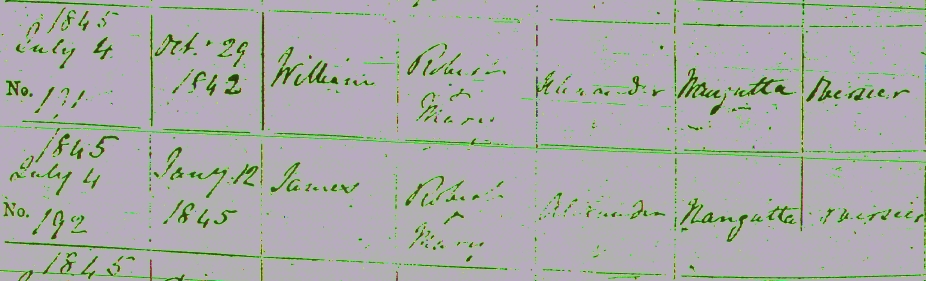 1845
July 4
No. 191
Octr 29
1842
William
Robert
&
Mary
Alexander
Nangutta
Overseer
1845
July 4
No. 192
Jany 12
1845
James
Robert
&
Mary
Alexander
Nangutta
Overseer
1845